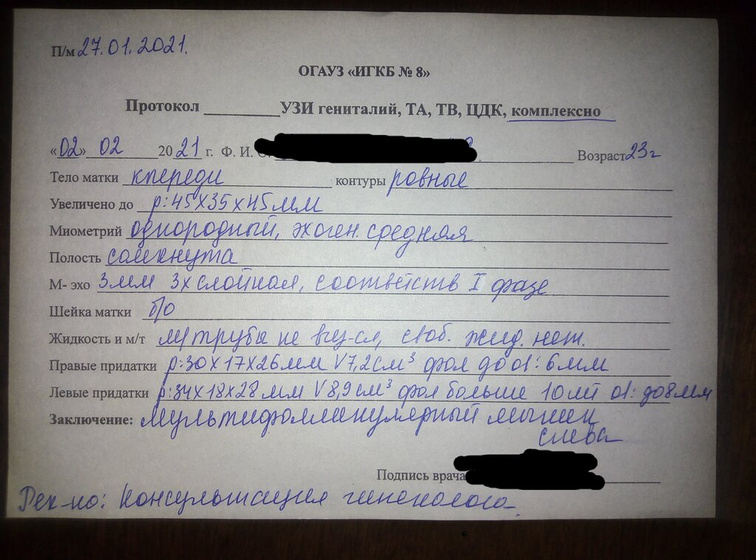 П/м 27.01.2021.
ОГАУЗ «ИГКБ № 8»
Протокол ________ УЗИ гениталий, ТА, ТВ, ЦДК, комплексно
«02» 02 2021 г. Ф. И. Возраст 23г
Тело матки кпереди контуры ровные
Увеличено до р: 45х35х45мм
Миометрий однородный, эхоген. средняя
Полость сомкнута
М- эхо 3мм 3х слойная, соответств I фазе
Шейка матки б/о
Жидкость и м/т м/трубы не виз-ся, своб. жид. нет.
Правые придатки р: 30х17х26мм V7,2см³ фол до d: 6мм
Левые придатки р: 34х18х28мм V8,9см³ фол больше 10 шт d: до 8мм
Заключение: мультифолликулярный яичник
слева
Подпись врача
Рек-но: Консультация гинеколога.